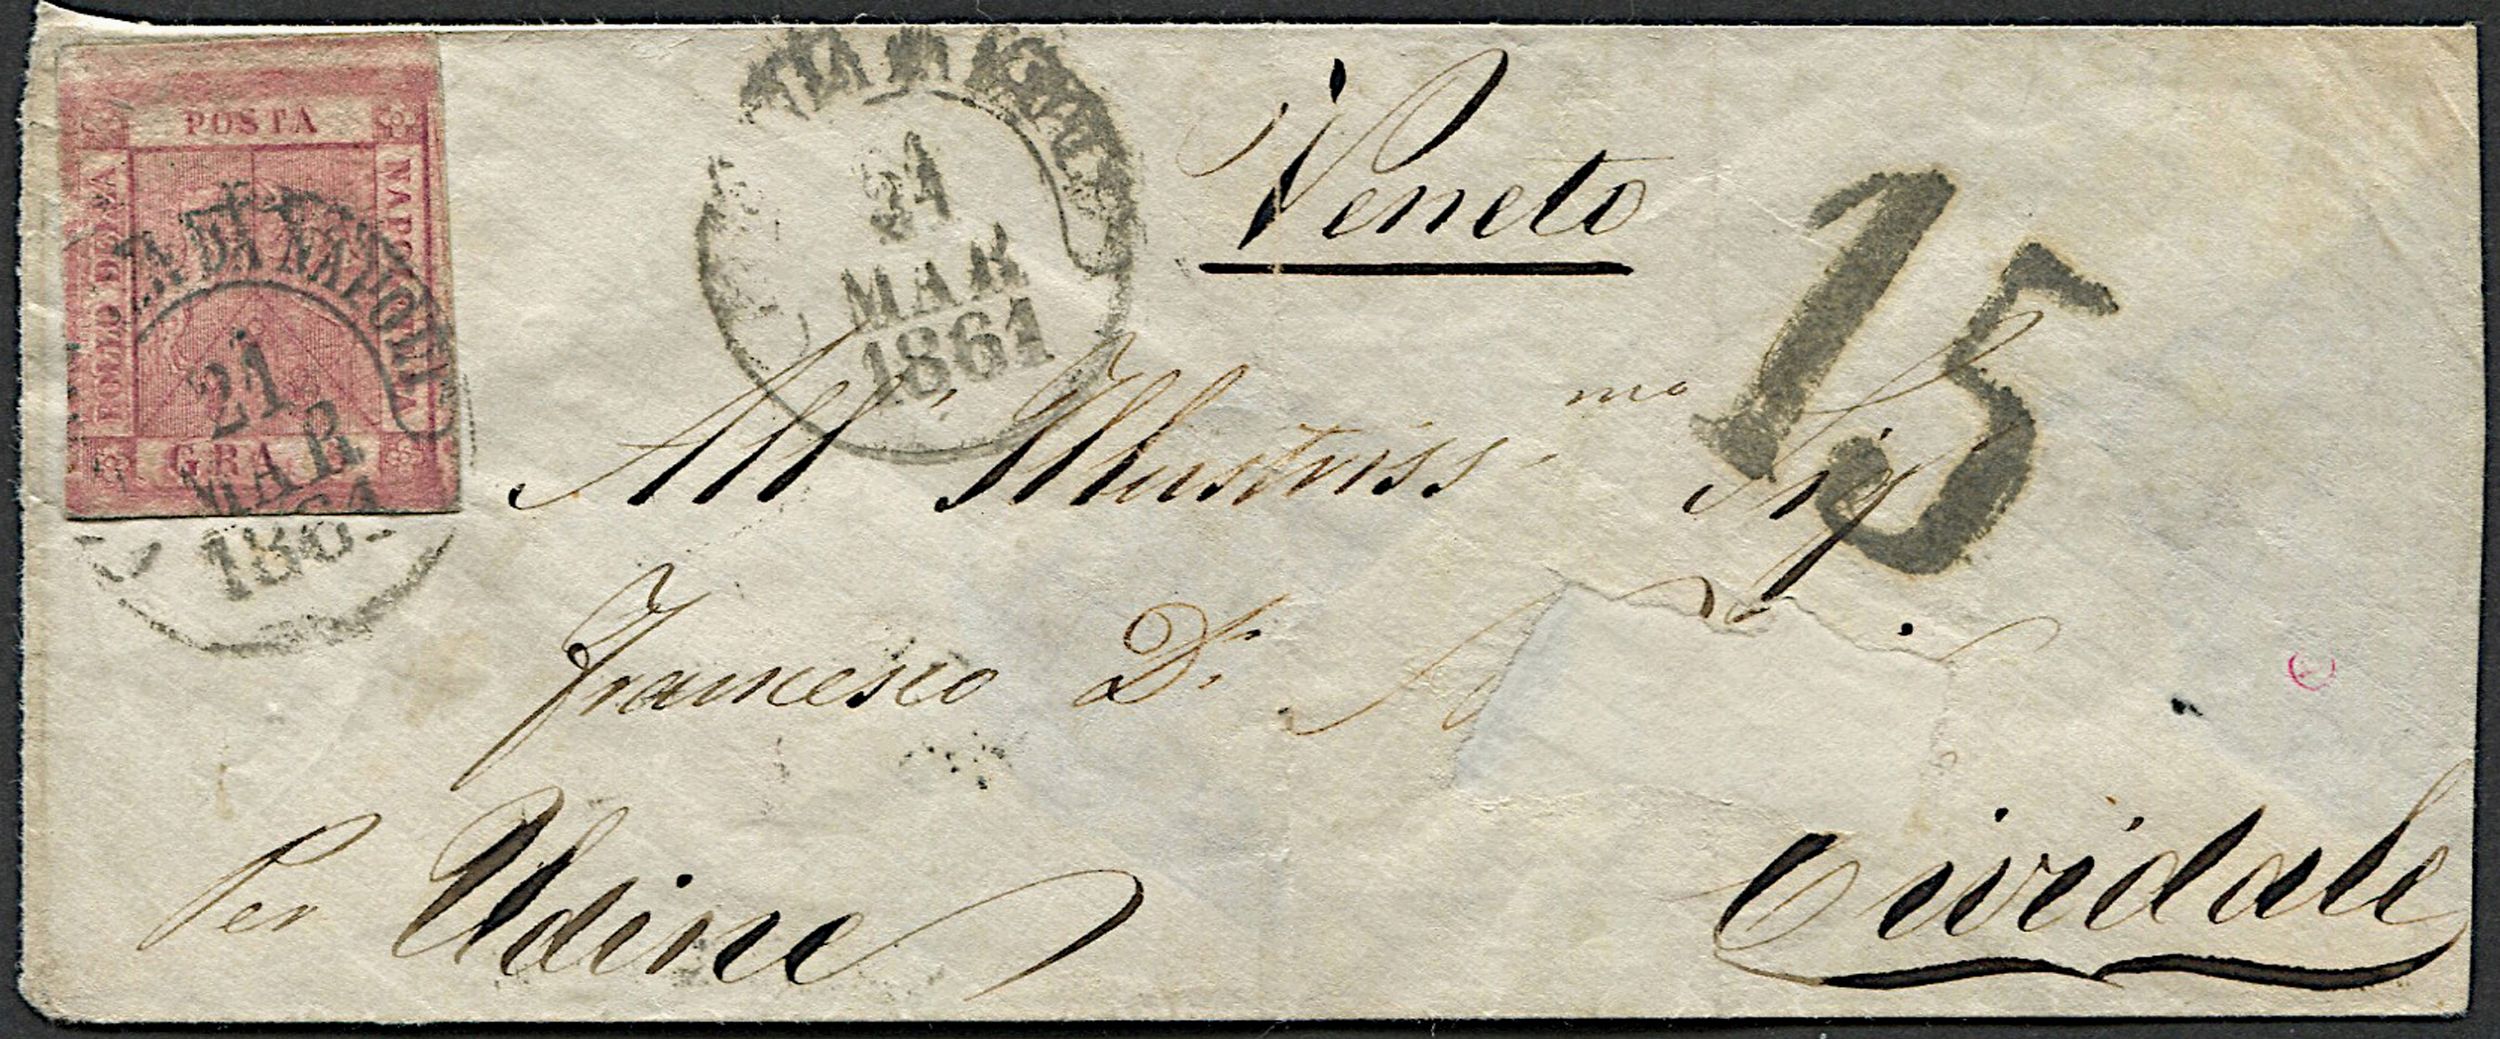 POSTA
NAPO
BOLLO DELLA
GRA
ZA DI NAPOLI
21
MAR
1861
21
MAR
1861
Veneto
15
All' Illustriss.mo Sig.
Francesco Dr.
Per Udine
Cividale